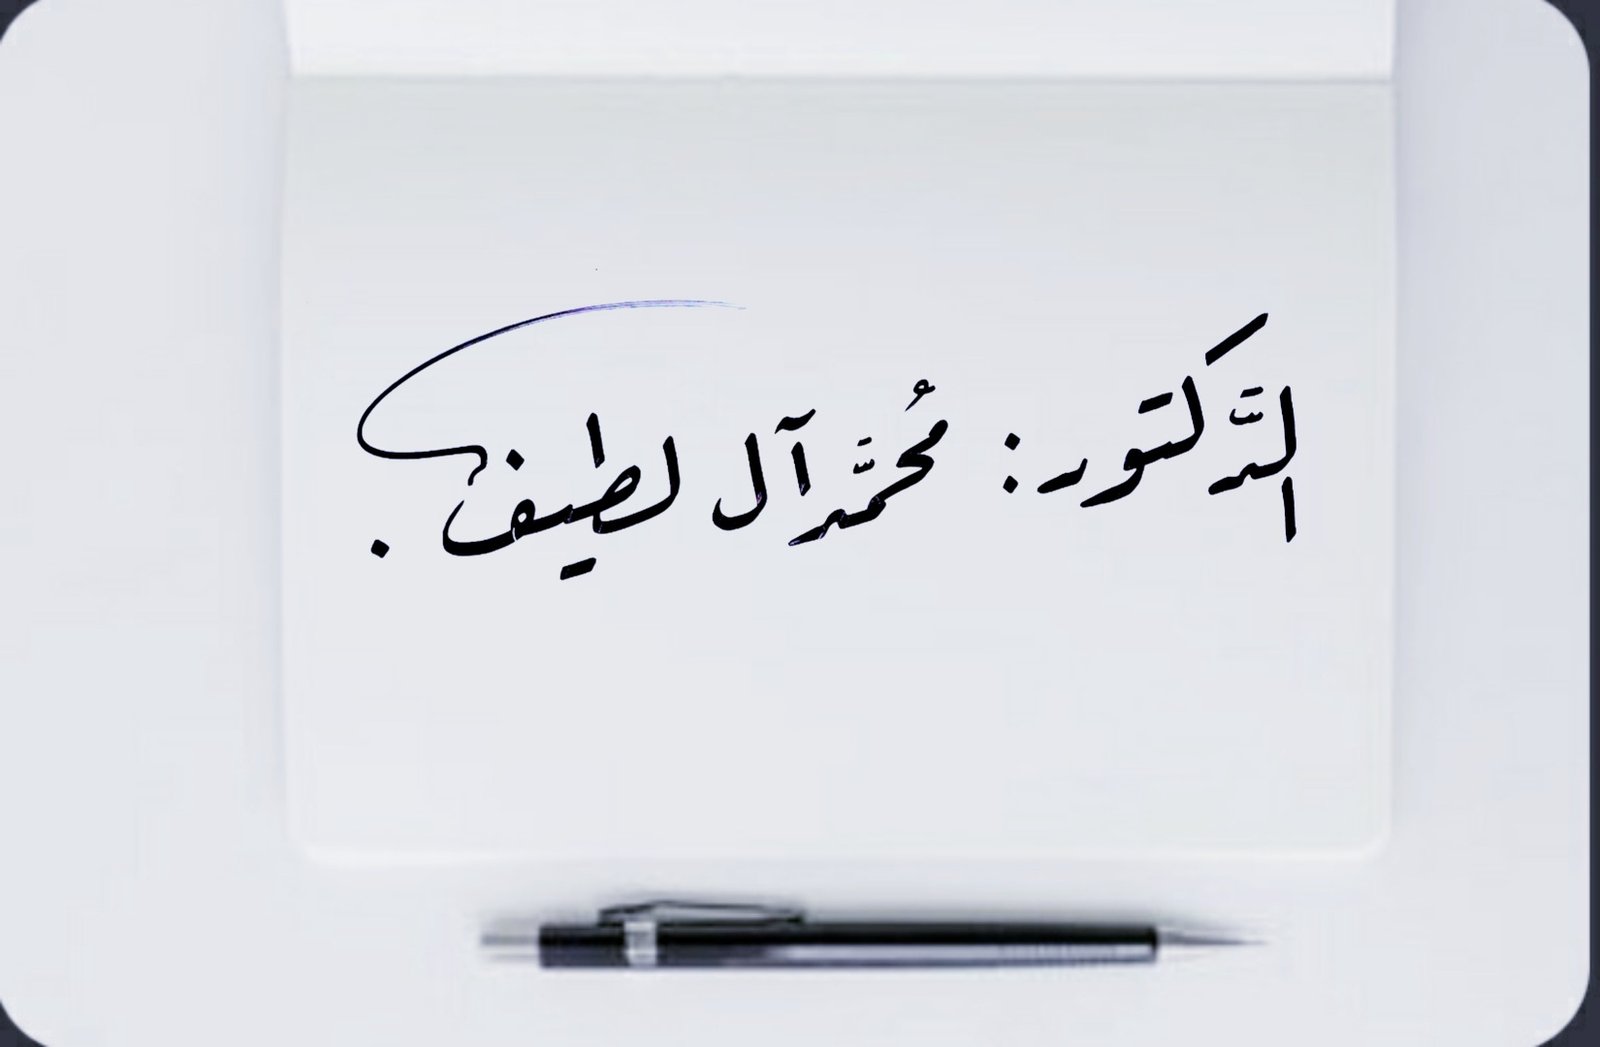 الدَّكتور: مُحمَّد آل لطيف.